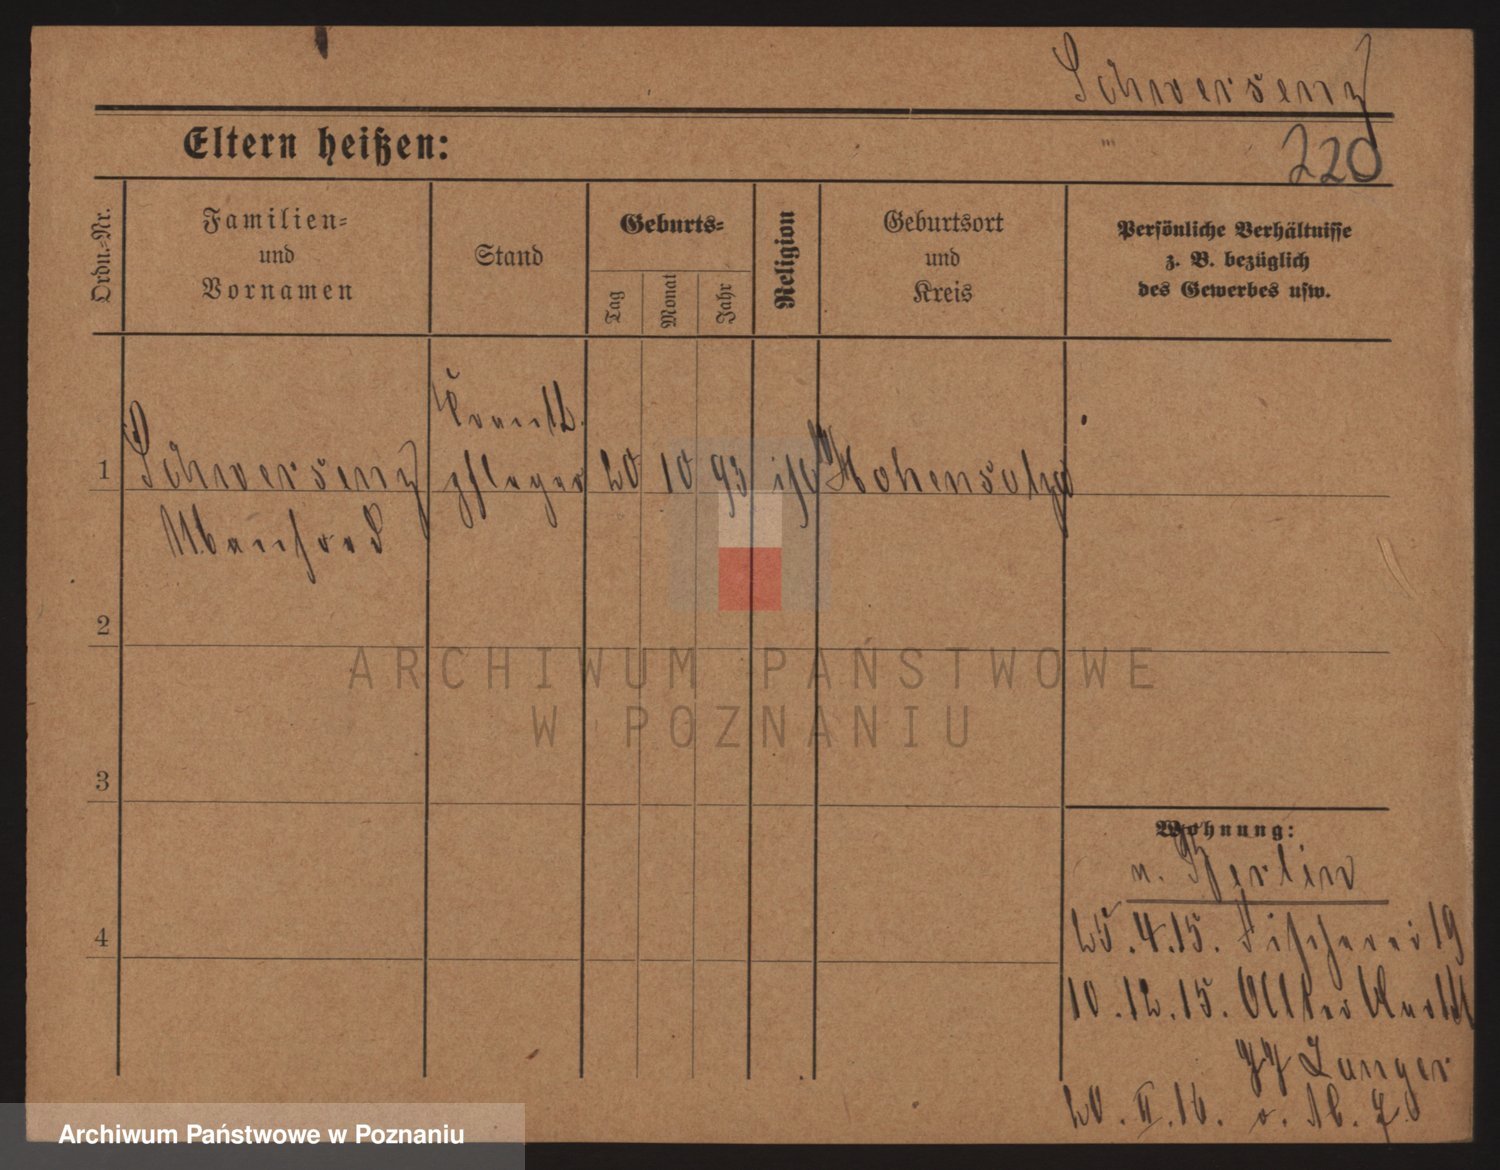 Schwersenz
Eltern heißen:
220
Ordn.-Nr.
Familien-
und
Vornamen
Stand
Geburts-
Tag
Monat
Jahr
Religion
Geburtsort
und
Kreis
Persönliche Verhältnisse
z. B. bezüglich
des Gewerbes usw.
1
Schwersenz
Manfred
Krank.
pfleger
20
10
93
isr
Hohensalza
2
3
4
Wohnung:
n. Berlin
25.4.15. Fischerei 19
10.12.15. Alter Markt
Langer
20. II. 16.
ARCHIWUM PAŃSTWOWE
W POZNANIU
Archiwum Państwowe w Poznaniu